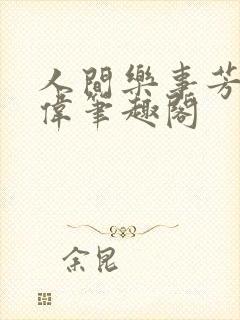 人間樂事芳
偉筆趣閣
余昆